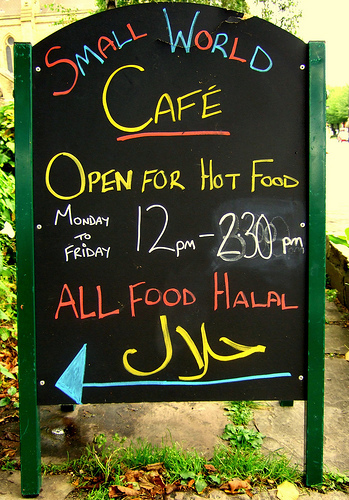 SMALL WORLD
CAFÉ
OPEN FOR HOT FOOD
MONDAY TO FRIDAY 12PM - 2:30 PM
ALL FOOD HALAL
حلال